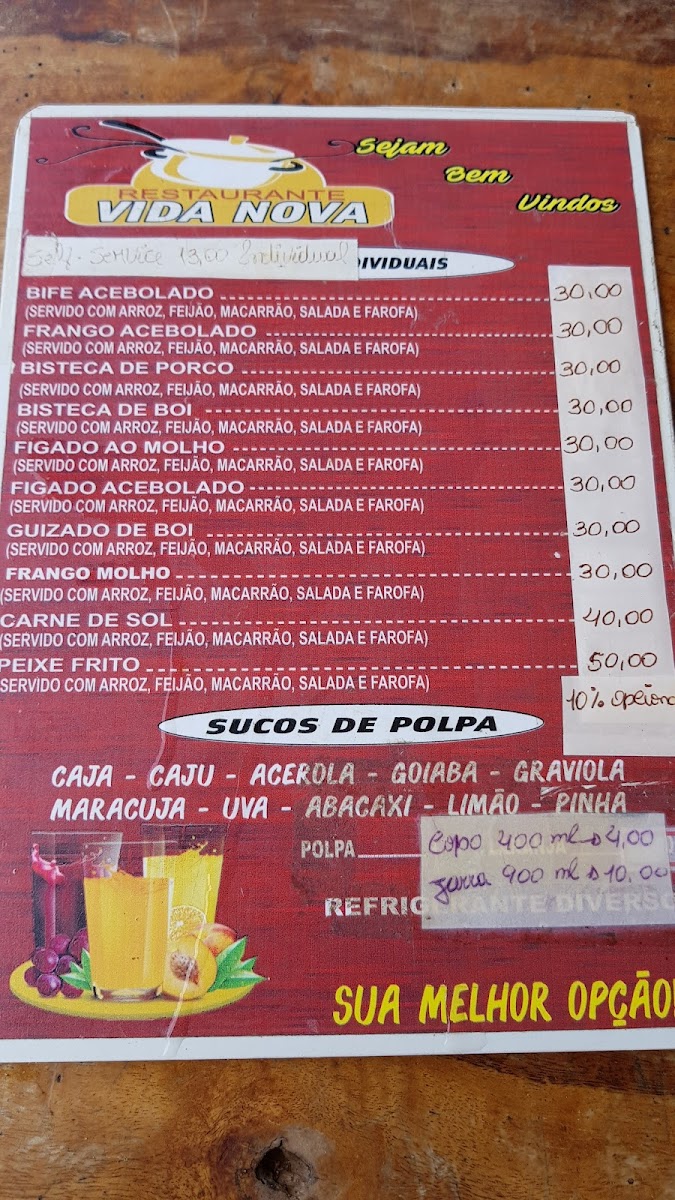 Sejam
Bem
Vindos
RESTAURANTE
VIDA NOVA
Self-Service 13,00 Individual
IVIDUAIS
BIFE ACEBOLADO 30,00
(SERVIDO COM ARROZ, FEIJÃO, MACARRÃO, SALADA E FAROFA)
FRANGO ACEBOLADO 30,00
(SERVIDO COM ARROZ, FEIJÃO, MACARRÃO, SALADA E FAROFA)
BISTECA DE PORCO 30,00
(SERVIDO COM ARROZ, FEIJÃO, MACARRÃO, SALADA E FAROFA)
BISTECA DE BOI 30,00
(SERVIDO COM ARROZ, FEIJÃO, MACARRÃO, SALADA E FAROFA)
FIGADO AO MOLHO 30,00
(SERVIDO COM ARROZ, FEIJÃO, MACARRÃO, SALADA E FAROFA)
FIGADO ACEBOLADO 30,00
(SERVIDO COM ARROZ, FEIJÃO, MACARRÃO, SALADA E FAROFA)
GUIZADO DE BOI 30,00
(SERVIDO COM ARROZ, FEIJÃO, MACARRÃO, SALADA E FAROFA)
FRANGO MOLHO 30,00
(SERVIDO COM ARROZ, FEIJÃO, MACARRÃO, SALADA E FAROFA)
CARNE DE SOL 40,00
(SERVIDO COM ARROZ, FEIJÃO, MACARRÃO, SALADA E FAROFA)
PEIXE FRITO 50,00
SERVIDO COM ARROZ, FEIJÃO, MACARRÃO, SALADA E FAROFA)
10% opciona
SUCOS DE POLPA
CAJA - CAJU - ACEROLA - GOIABA - GRAVIOLA
MARACUJA - UVA - ABACAXI - LIMÃO - PINHA
POLPA
Copo 400 ml 4,00
Jarra 900 ml 10,00
REFRIGERANTE DIVERSO
SUA MELHOR OPÇÃO!